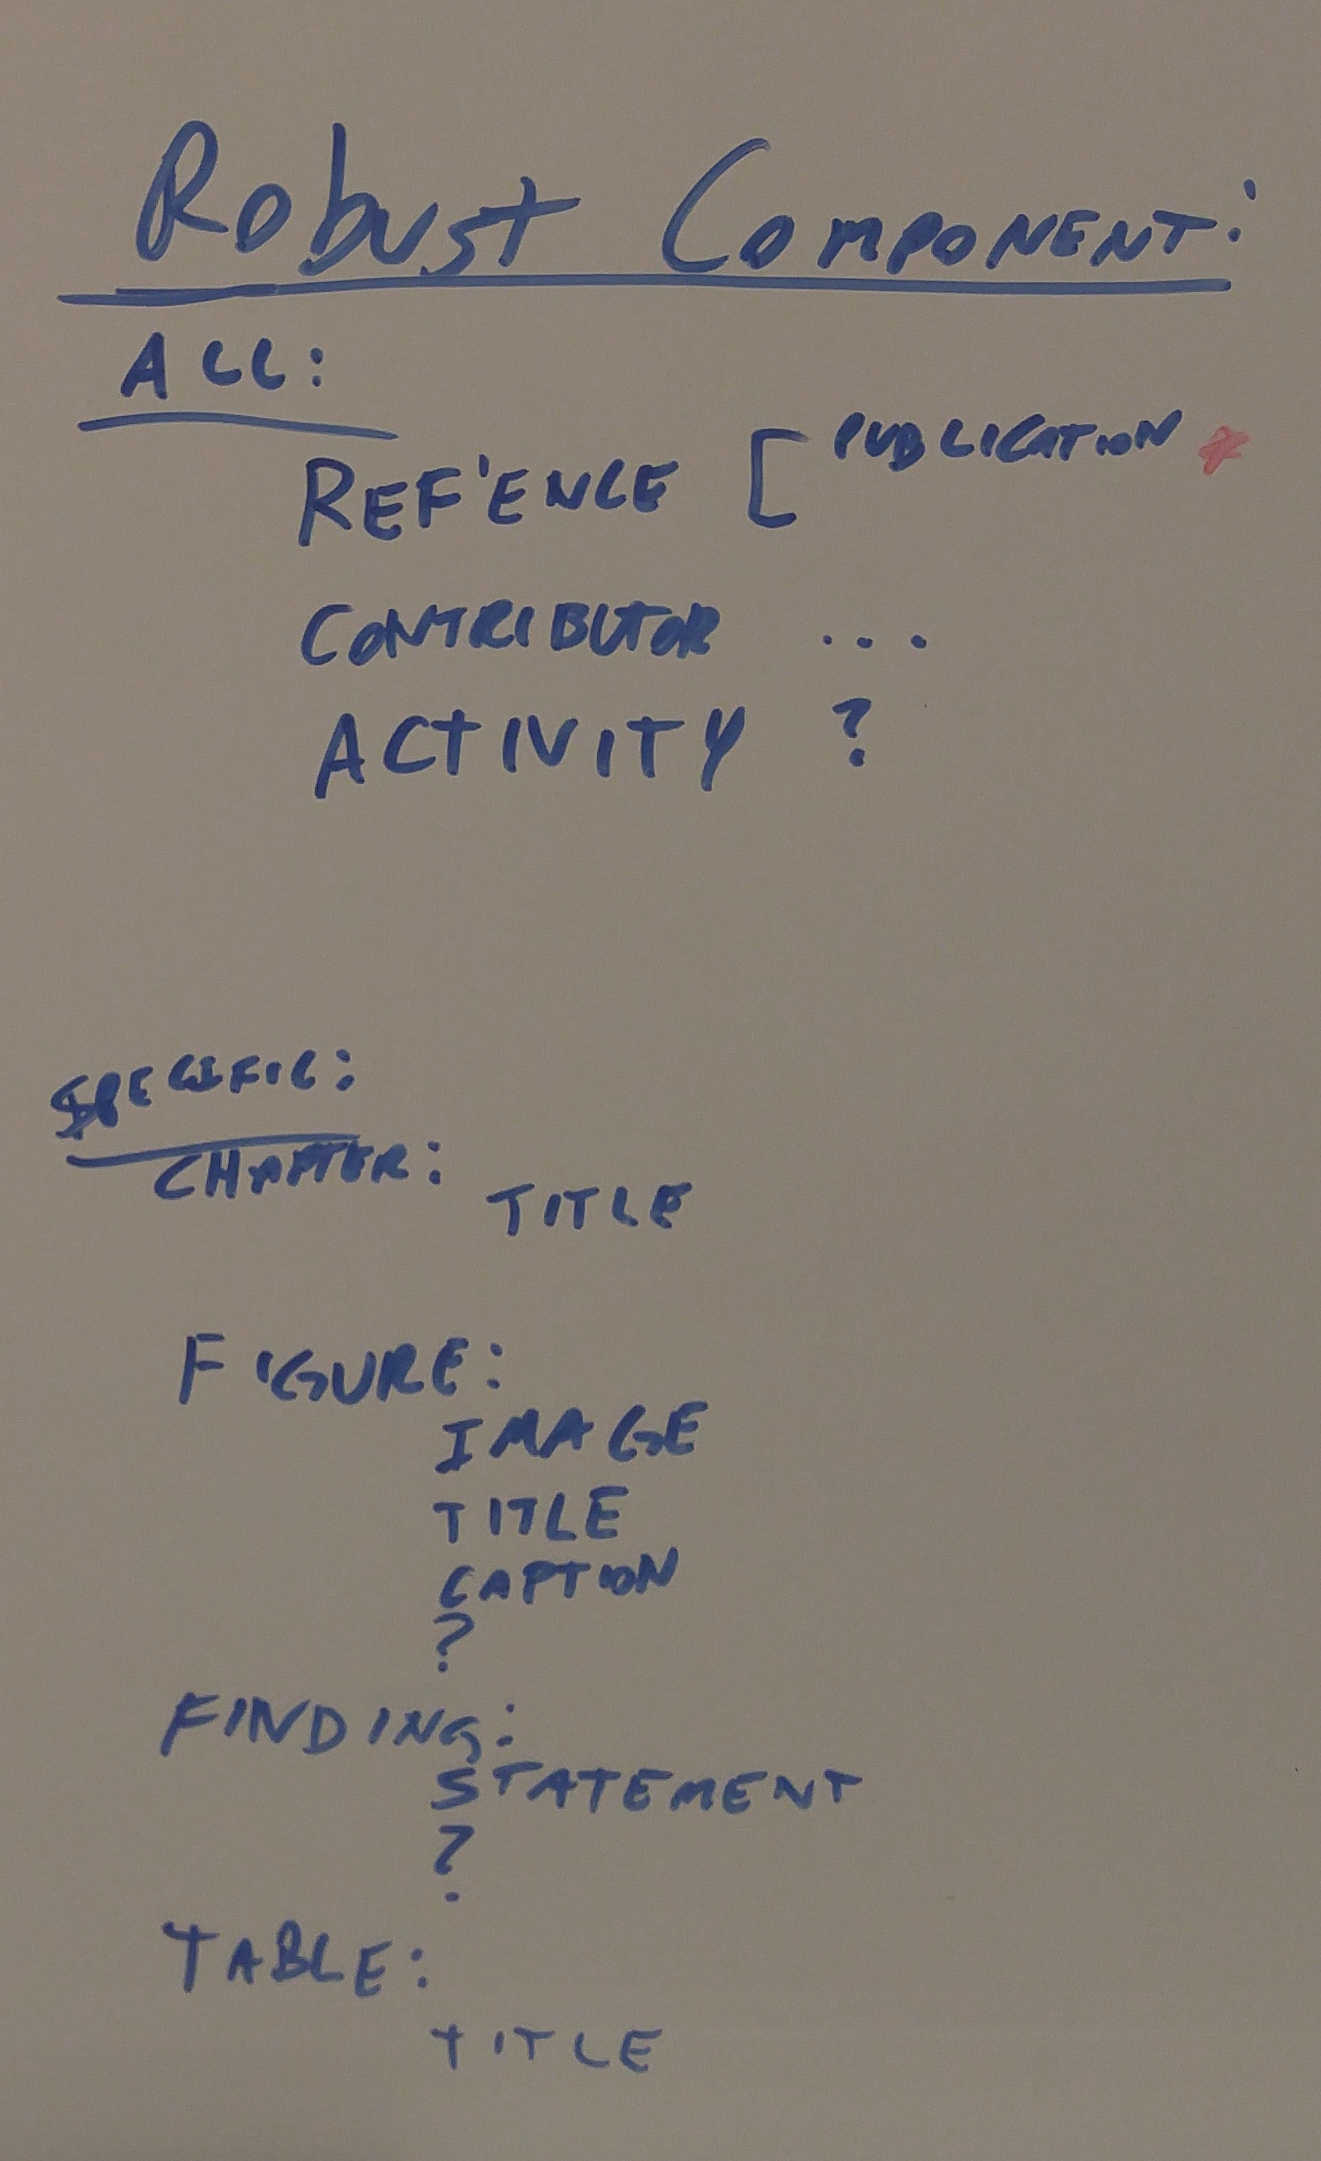 Robust Component:
ALL:
REF'ENCE [ PUBLICATION *
CONTRIBUTOR ...
ACTIVITY ?
SPECIFIC:
CHAPTER:
TITLE
FIGURE:
IMAGE
TITLE
CAPTION
?
FINDING:
STATEMENT
?
TABLE:
TITLE